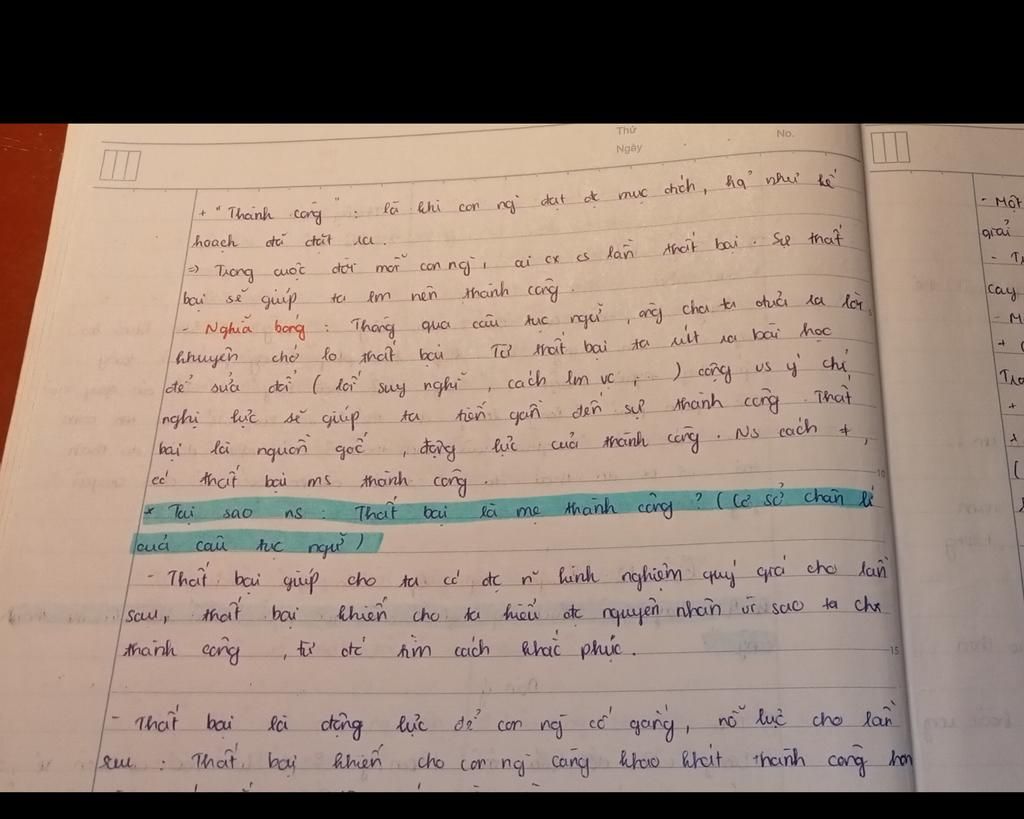 Thứ
No.
Ngày
+ "Thành công" : là khi con ng đạt đc mục đích, hq̉ như kế
hoạch đã đặt ra.
=> Trong cuộc đời mỗi con ng, ai cx cs lần thất bại. Sự thất
bại sẽ giúp ta lm nên thành công.
- Nghĩa bóng : Thông qua câu tục ngữ, ông cha ta đưa ra lời
khuyên chớ lo thất bại Từ thất bại ta rút ra bài học
để sửa đổi ( lối suy nghĩ, cách lm vc, ... ) cộng vs ý chí,
nghị lực sẽ giúp ta tiến gần đến sự thành công. Thất
bại là nguồn gốc, động lực của thành công. Ns cách ≠,
có thất bại ms thành công.
* Tại sao ns : Thất bại là mẹ thành công ? ( Cơ sở chân lí
của câu tục ngữ )
- Thất bại giúp cho ta có đc n~ kinh nghiệm quý giá cho lần
sau, thất bại khiến cho ta hiểu đc nguyên nhân vì sao ta chx
thành công, từ đó tìm cách khắc phục.
10
15
- Thất bại là động lực để con ng cố gắng, nỗ lực cho lần
sau : Thất bại khiến cho con ng càng khao khát thành công hơn
- Một
giải
cay
- M
+
+
(